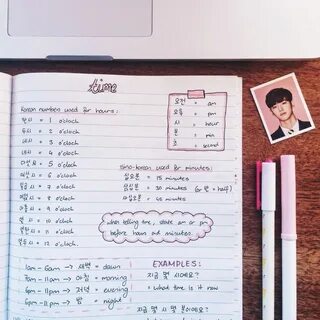 time
Korean numbers used for hours:
한시 = 1 o'clock
두시 = 2 o'clock
세시 = 3 o'clock
네시 = 4 o'clock
다섯시 = 5 o'clock
여섯시 = 6 o'clock
일곱시 = 7 o'clock
여덟시 = 8 o'clock
아홉시 = 9 o'clock
열시 = 10 o'clock
열한시 = 11 o'clock
열두시 = 12 o'clock
1am - 6am → 새벽 = dawn
7am - 11am → 아침 = morning
6pm - → 저녁 = evening
→ 밤 = night
오전 = am
오후 = pm
시 = hour
분 = min
초 = second
Sino-Korean used for minutes:
십오분 = 15 minutes
삼십분 = 30 minutes (or 반 = half)
사십오분 = 45 minutes
when telling time, state am or pm
before hours and minutes
EXAMPLES:
지금 몇 시예요?
= what time is it now
지금 몇 시 몇 분이에요?